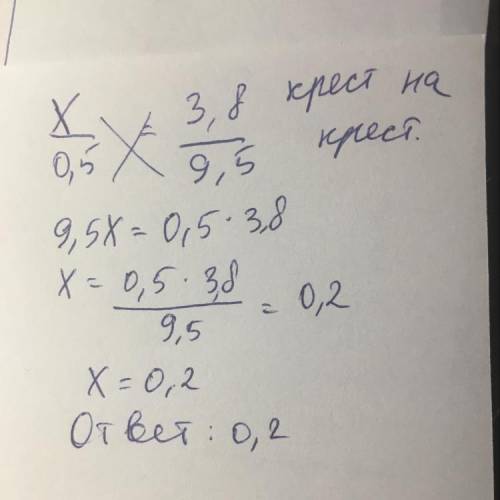 x/0,5 = 3,8/9,5 крест на крест.
9,5x = 0,5 · 3,8
x = 0,5 · 3,8/9,5 = 0,2
x = 0,2
Ответ: 0,2